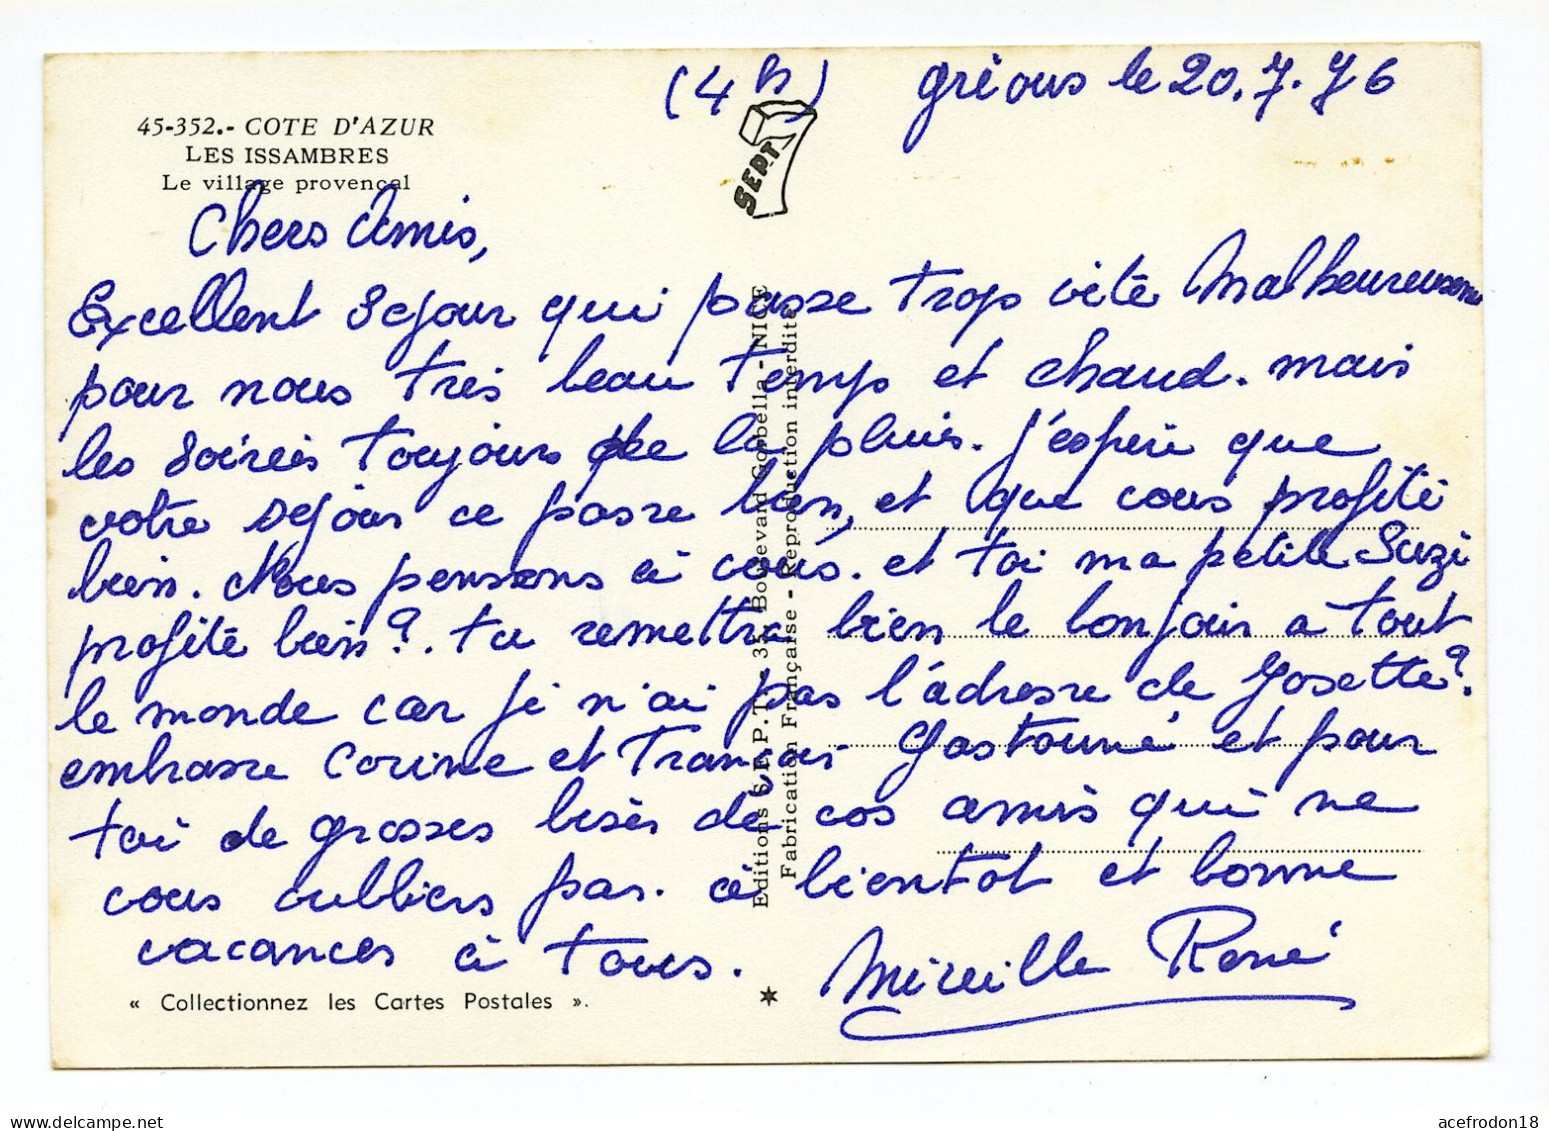 (4h) Gréous le 20.7.76
45-352.- COTE D'AZUR
LES ISSAMBRES
Le village provençal
SEPT
Chers Amis,
Excellent sejour qui passe trop vite Malheureusem
pour nous très beau temps et chaud. mais
les soirées toujours de la pluie. j'espère que
votre sejour ce passe bien, et que vous profité
bien. Nous pensons à vous. et toi ma petite Suzi
profité bien?. tu remettra bien le bonjour a tout
le monde car je n'ai pas l'adresse de Josette?.
embrasse Corine et Françoi Gastouné et pour
toi de grosses bises de vos amis qui ne
vous oubliens pas. à bientot et bonne
vacances à tous.
Mireille René
« Collectionnez les Cartes Postales ».
Editions S.E.P.T. - 35, Boulevard Gorbella - NICE
Fabrication Française - Reproduction interdite
acefrodon18